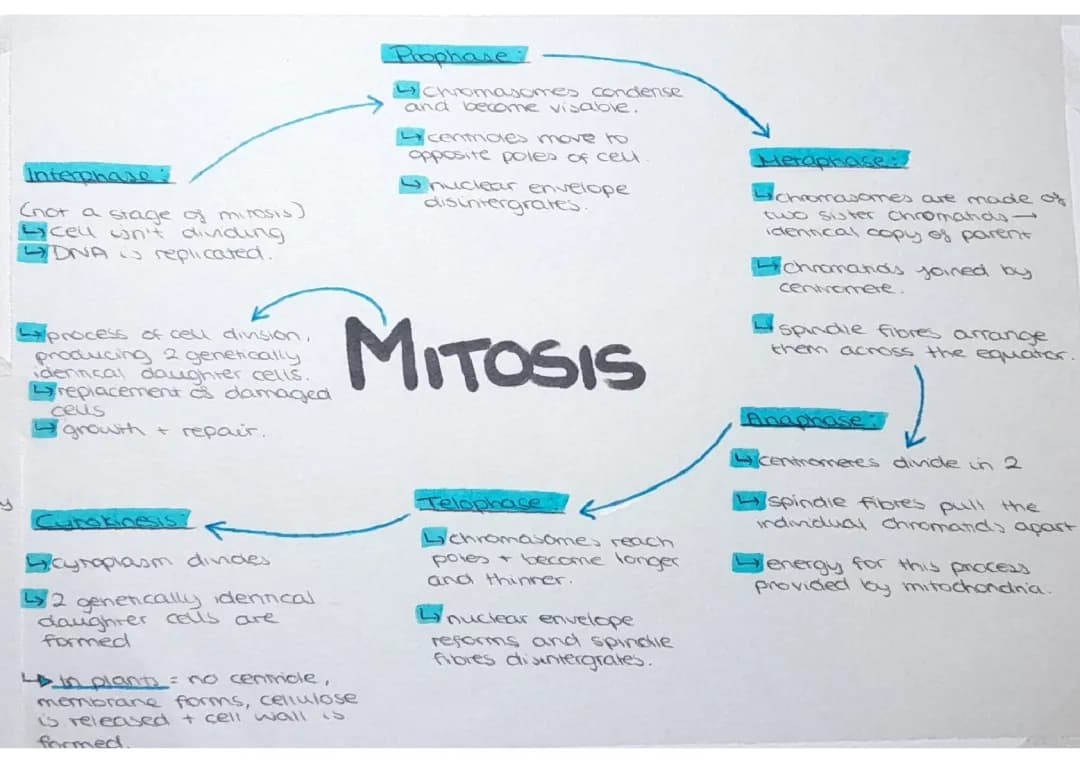 Prophase:
↳ chromasomes condense
and become visable.
↳ centrioles move to
opposite poles of cell.
↳ nuclear envelope
disintergrates.
Interphase:
(not a stage of mitosis)
↳ cell isn't dividing
↳ DNA is replicated.
Metaphase:
↳ chromasomes are made of
two sister chromatids →
identical copy of parent
↳ chromatids joined by
centromere.
↳ spindle fibres arrange
them across the equator.
MITOSIS
↳ process of cell division,
producing 2 genetically
identical daughter cells.
↳ replacement of damaged
cells
↳ growth + repair.
Anaphase:
↳ centromeres divide in 2
↳ spindle fibres pull the
individual chromatids apart
↳ energy for this process
provided by mitochondria.
Telophase:
↳ chromasomes reach
poles + become longer
and thinner.
↳ nuclear envelope
reforms and spindle
fibres disintergrates.
Cytokinesis
↳ cytoplasm divides
↳ 2 genetically identical
daughter cells are
formed
↳ In plants = no centriole,
membrane forms, cellulose
is released + cell wall is
formed.